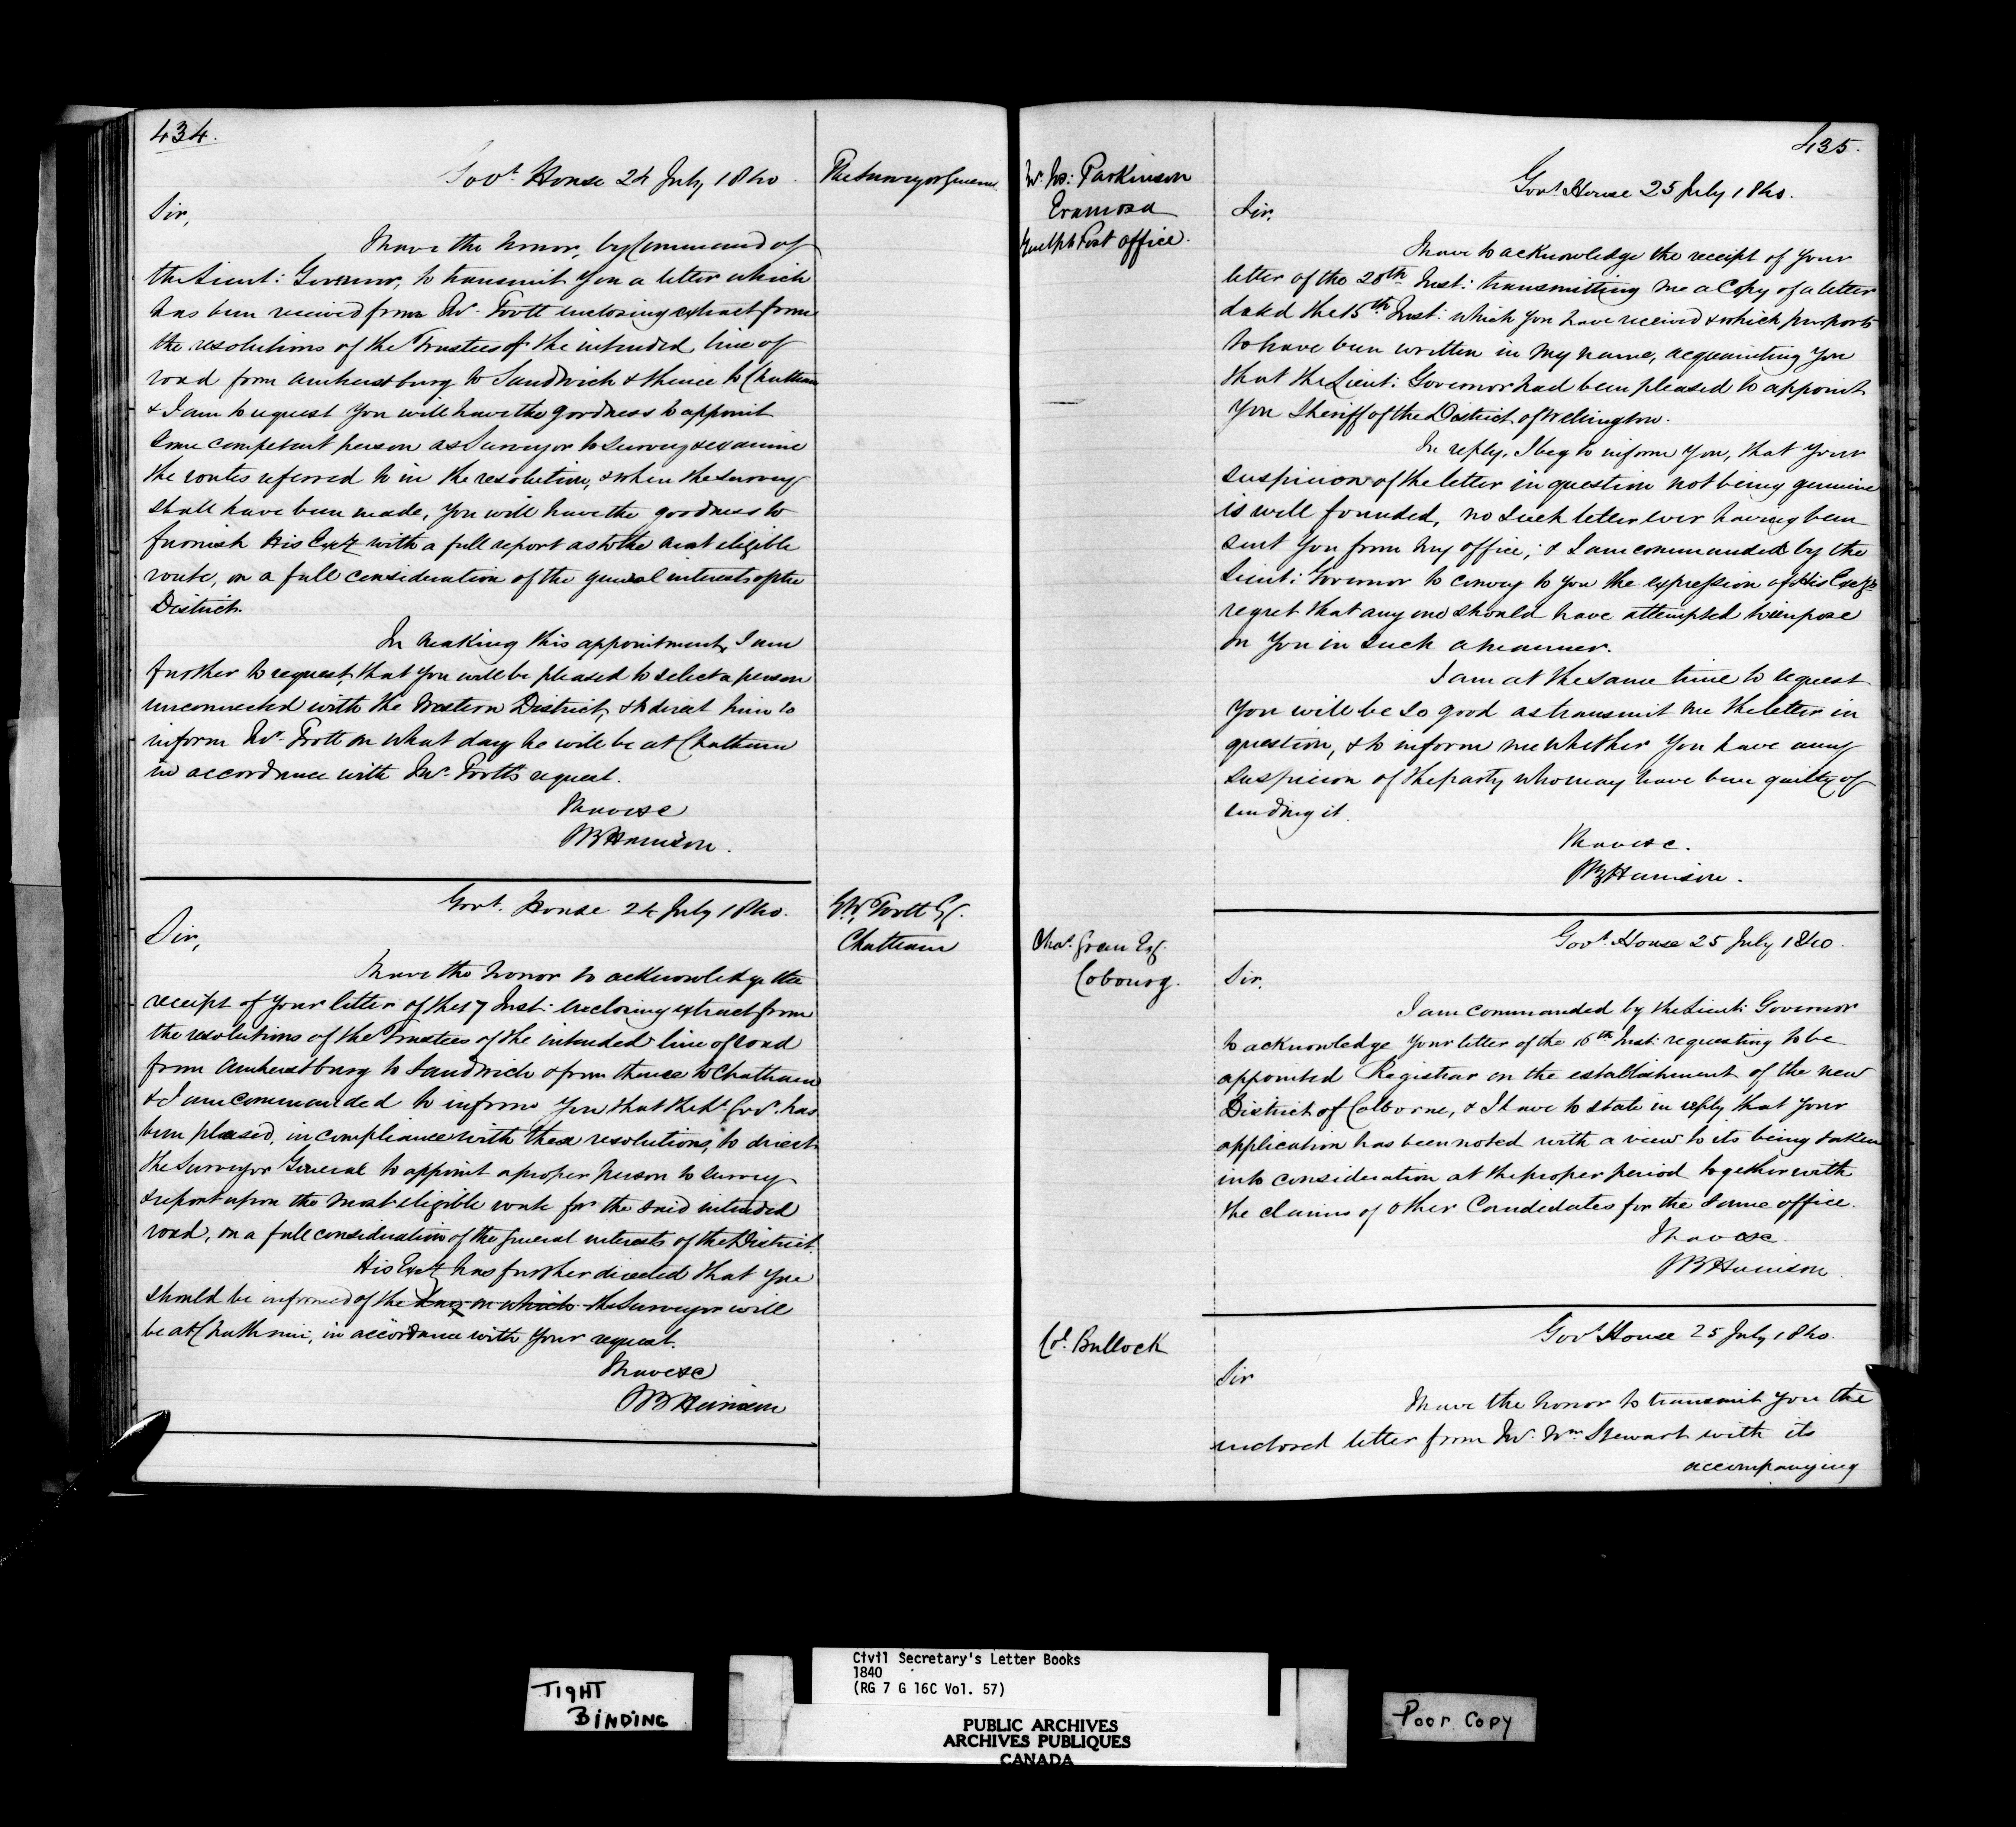 434.
Govt. House 24 July 1840.
The Surveyor General
Sir,
I have the honor, by Command of
the Lieut: Governor, to transmit you a letter which
has been received from Mr. Foott enclosing extract from
the resolutions of the Trustees of the intended line of
road from Amherstburg to Sandwich & thence to Chatham
& I am to request you will have the goodness to appoint
some competent person as Surveyor to survey & examine
the routes referred to in the resolution, & when the survey
shall have been made, you will have the goodness to
furnish His Excy with a full report as to the most eligible
route, on a full consideration of the general interests of the
District.
In making this appointment, I am
further to request, that you will be pleased to select a person
unconnected with the Western District, & to direct him to
inform Mr. Foott on what day he will be at Chatham
in accordance with Mr. Foott's request.
I have &c
SB Harrison.
Govt. House 24 July 1840.
Foott Esq.
Chatham
Sir,
I have the honor to acknowledge the
receipt of your letter of the 17 Inst: enclosing extract from
the resolutions of the Trustees of the intended line of road
from Amherstburg to Sandwich & from thence to Chatham
& I am commanded to inform you that the Lt. Govr. has
been pleased, in compliance with these resolutions, to direct
the Surveyor General to appoint a proper person to survey
& report upon the most eligible route for the said intended
road, on a full consideration of the general interests of the District.
His Excy has further directed that you
should be informed of the day on which the Surveyor will
be at Chatham, in accordance with your request.
I have &c
SB Harrison
435.
Mr. Parkinson
Eramosa
Guelph Post office.
Govt. House 25 July 1840.
Sir,
I have to acknowledge the receipt of your
letter of the 20th Inst: transmitting me a Copy of a letter
dated the 15th Inst: which you have received & which purports
to have been written in my name, acquainting you
that the Lieut: Governor had been pleased to appoint
you Sheriff of the District of Wellington.
In reply, I beg to inform you, that your
suspicion of the letter in question not being genuine
is well founded, no such letter ever having been
sent you from my office; & I am commanded by the
Lieut: Governor to convey to you the expression of His Excy's
regret that any one should have attempted to impose
on you in such a manner.
I am at the same time to request
you will be so good as transmit me the letter in
question, & to inform me whether you have any
suspicion of the party who may have been guilty of
sending it.
I have &c.
SB Harrison.
Chas. Esq.
Cobourg.
Govt. House 25 July 1840.
Sir,
I am commanded by the Lieut: Governor
to acknowledge your letter of the 16th Inst: requesting to be
appointed Registrar on the establishment of the new
District of Colborne, & I have to state in reply that your
application has been noted with a view to its being taken
into consideration at the proper period together with
the claims of other Candidates for the same office.
I have &c.
SB Harrison.
Col. Bullock
Govt House 25 July 1840.
Sir
I have the honor to transmit you the
enclosed letter from Mr. Wm. Stewart with its
accompanying
TIGHT
BINDING
Civil Secretary's Letter Books
1840
(RG 7 G 16C Vol. 57)
PUBLIC ARCHIVES
ARCHIVES PUBLIQUES
CANADA
Poor Copy